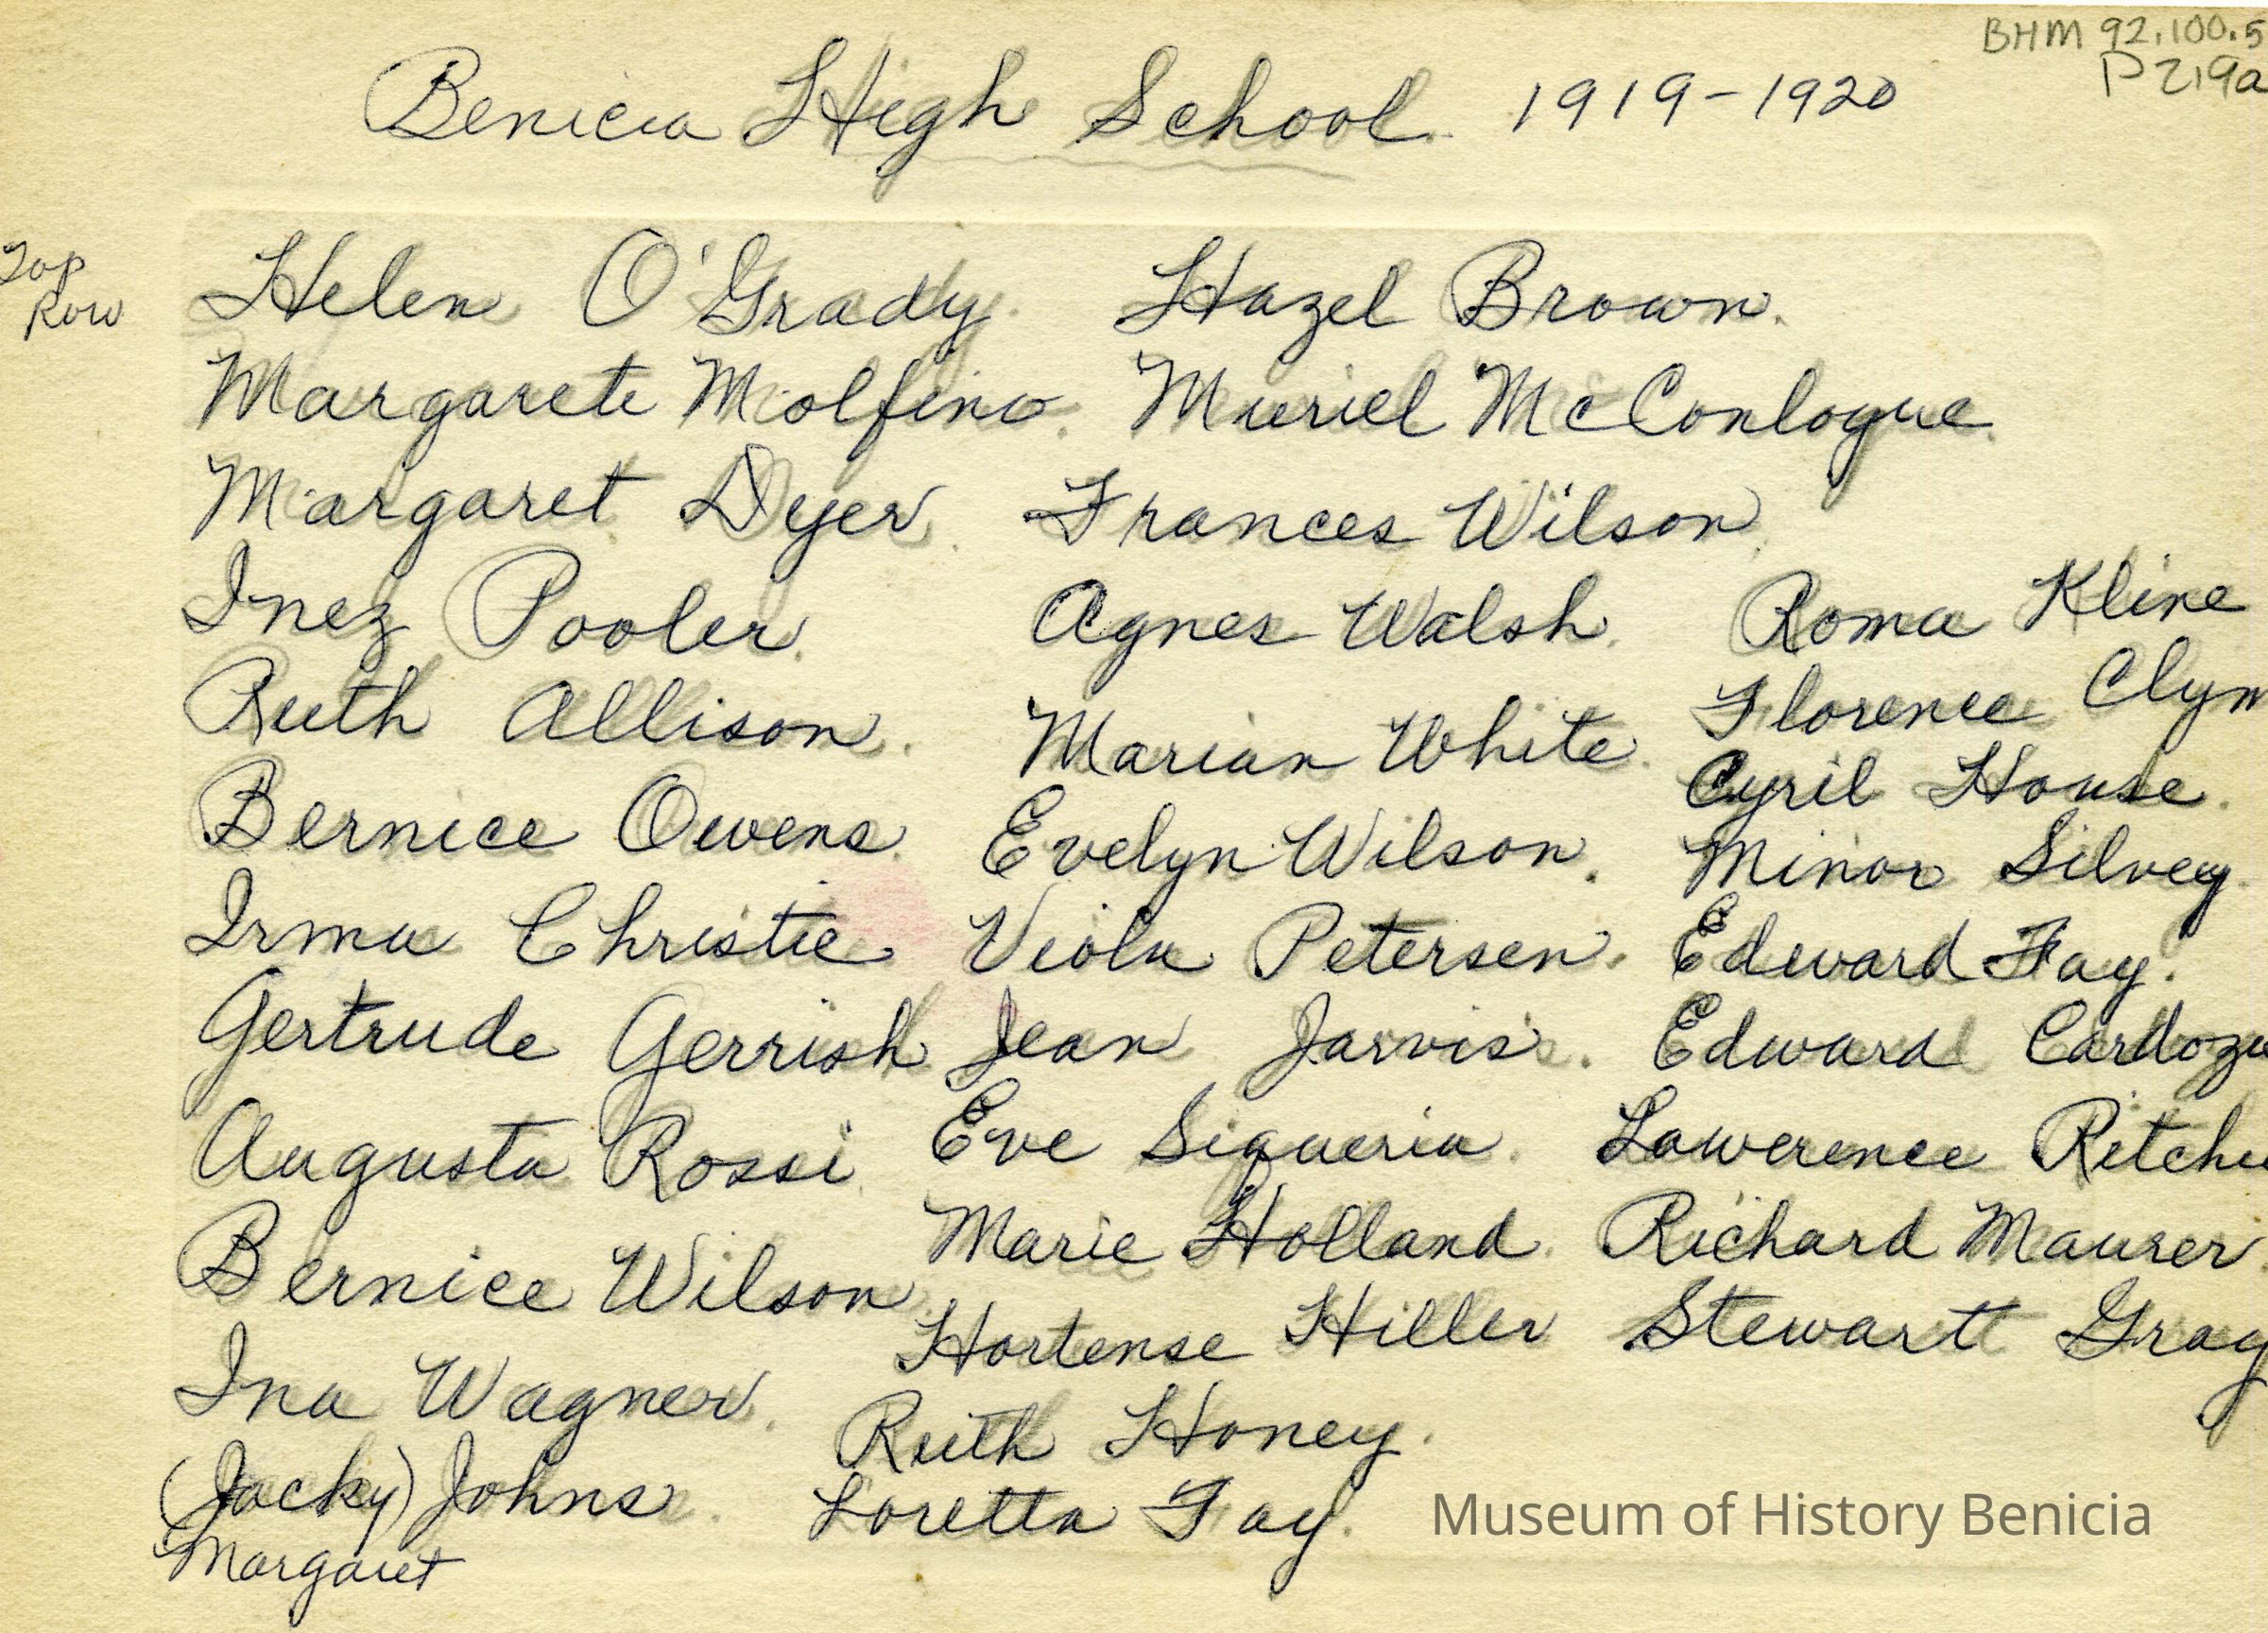 BHM 92.100.5
P219a
Benicia High School 1919-1920
Top
Row
Helen O'Grady. Hazel Brown.
Margarete Molfino. Muriel McConlogue.
Margaret Dyer. Frances Wilson.
Inez Pooler. Agnes Walsh. Roma Kline
Ruth Allison. Marian White. Florence Clyn
Bernice Owens. Evelyn Wilson. Cyril House.
Irma Christie Viola Petersen. Minor Silvey.
Gertrude Gerrish Jean Jarvis. Edward Fay.
Augusta Rossi Eve Siqueria. Edward Cardoza
Bernice Wilson. Marie Holland. Lawerence Ritchie
Ina Wagner. Hortense Hiller Richard Maurer.
(Jacky) Johns. Ruth Honey. Stewart Gray
Margaret Loretta Fay.
Museum of History Benicia